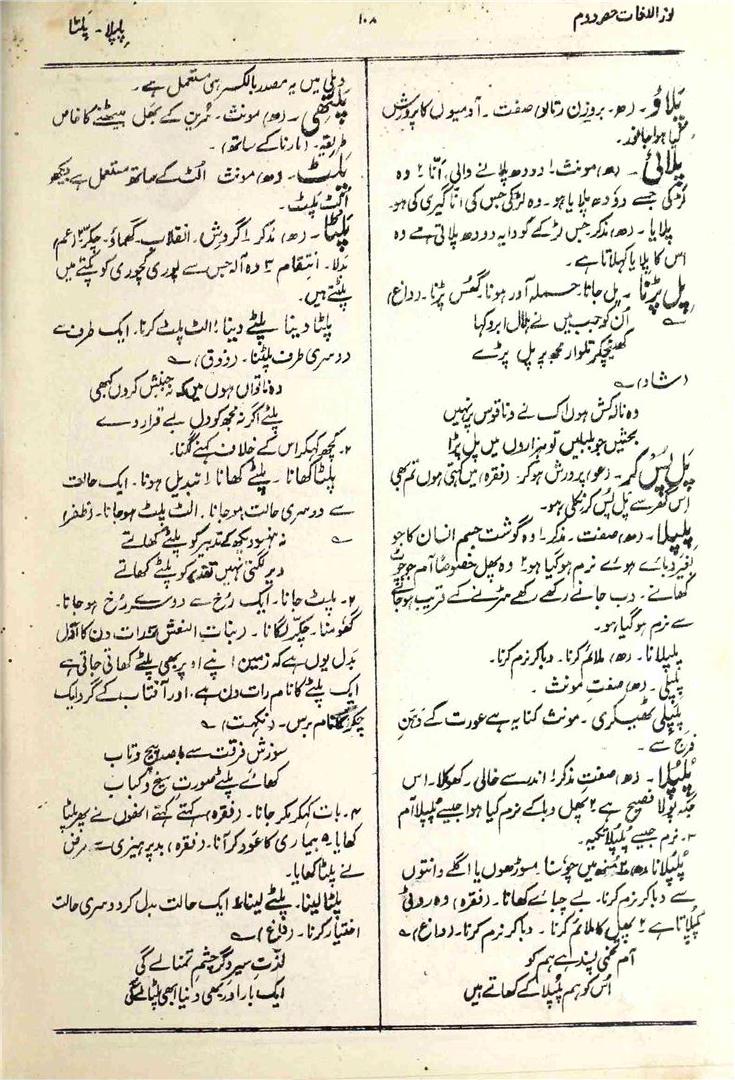 نور اللغات حصہ دوم
۱۰۸
پلپلا - پلٹا
پلاؤ - (ھ - بروزن رتالو) صفت - آدمیوں کا پرورش
کیا ہوا جانور
پلائی - (ھ) مونث ۱ دودھ پلانے والی - انّا ۲ وہ
لڑکی جسے دودھ پلایا ہو - وہ لڑکی جس کی انّا گیری کی ہو -
پلایا - (ھ) مذکر جس لڑکے کو دایہ دودھ پلاتی ہے وہ
اس کا پلایا کہلاتا ہے -
پل پڑنا - پل جانا - حملہ آور ہونا - گھس پڑنا - (داغ)
اُن کو جب میں نے ہلال ابرو کہا
کھینچکر تلوار مجھ پر پل پڑے
(شاد)
وہ نالہ کش ہوں اک نے دناقوس پر نہیں
بحثیں جو بلبلیں تو ہزاروں میں پل پڑا
پَل پُس کر - (عو) پرورش ہوکر - (فقرہ) میں کہتی ہوں تم بھی
اس گھر سے پل پُس کر نکلی ہو -
پلپلا - (ھ) صفت - مذکر ۱ وہ گوشت جسم انسان کا جو
بغیر دبائے ہوئے نرم ہوگیا ہو ۲ وہ پھل خصوصاً آم جو چوٹ
کھانے - دب جانے رکھے رکھے سڑنے کے قریب ہوجانے
سے نرم ہوگیا ہو -
پلپلانا - (ھ) ملائم کرنا - دباکر نرم کرنا -
پلپلی - (ھ) صفت مونث -
پلپلی ٹھیکری - مونث کنایہ ہے عورت کے
فرج سے -
پُلپُلا - (ھ) صفت مذکر ۱ اندر سے خالی - کھوکھلا - اس
جگہ پولا فصیح ہے ۲ پھل دبا کے نرم کیا ہوا جیسے پُلپُلا آم
۳ - نرم جیسے پُلپُلا تکیہ -
پُلپُلانا (ھ) ۱ منھ میں چوسنا - مسوڑھوں یا اگلے دانتوں
سے دباکر نرم کرنا - بے چبائے کھانا - (فقرہ) وہ روٹی
پُلپُلاتا ہے ۲ پھل کا ملائم کرنا - دباکر نرم کرنا - (داغ)
آم گُٹھلی پسند ہے ہم کو
اُس کو ہم پُلپُلا کے کھاتے ہیں
دہلی میں یہ مصدر بالکسر ہی مستعمل ہے -
پلتھی - (ھ) مونث - سُرین کے بھَل بیٹھنے کا خاص
طریقہ - (مارنا کے ساتھ) -
پلٹ - (ھ) مونث الٹ کے ساتھ مستعمل ہے دیکھو
اُلٹ پلٹ -
پلٹا - (ھ) مذکر ۱ گردش - انقلاب - گھماؤ - چکر ۲ (عم)
بدلا - انتقام ۳ وہ آلہ جس سے پوری کچوری کو گھی میں
پلٹتے ہیں -
پلٹا دینا پلٹے دینا ۱ الٹ پلٹ کرنا - ایک طرف سے
دوسری طرف پلٹنا - (ذوق)
وہ ناتواں ہوں میں کہ نہ جنبش کروں کبھی
پلٹے اگر نہ مجھ کو دل بے قرار دے
۲ - کچھ کہکر اس کے خلاف کہنے لگنا -
پلٹا کھانا - پلٹے کھانا ۱ تبدیل ہونا - ایک حالت
سے دوسری حالت ہوجانا - الٹ پلٹ ہوجانا - (ظفر)
نہ ہنسو دیکھ کے تدبیر کو پلٹے کھاتے
دیر لگتی نہیں تقدیر کو پلٹے کھاتے
۲ - پلٹ جانا - ایک رُخ سے دوسرے رُخ ہوجانا -
گھومنا - چکّر لگانا - (بنات النعش) رات دن کا ادل
بدل یوں ہے کہ زمین اپنے اوپر بھی پلٹے کھاتی جاتی ہے
ایک پلٹے کا نام رات دن ہے - اور آفتاب کے گرد ایک
چکر کا نام برس - (نکہت)
سوزش فرقت سے بصد پیچ و تاب
کھائے پلٹے صورت سیخ و کباب
۴ - بات کہکر مکر جانا - (فقرہ) کہتے کہتے انھوں نے پھر پلٹا
کھایا ۵ بیماری کا عود کر آنا - (فقرہ) بدپرہیزی سے مرض
نے پلٹا کھایا -
پلٹا لینا - پلٹے لینا ۱ ایک حالت بدل کر دوسری حالت
اختیار کرنا - (داغ)
لذتِ سیر دگر چشمِ تمنا لے گی
ایک بار اور بھی دنیا ابھی پلٹا لے گی